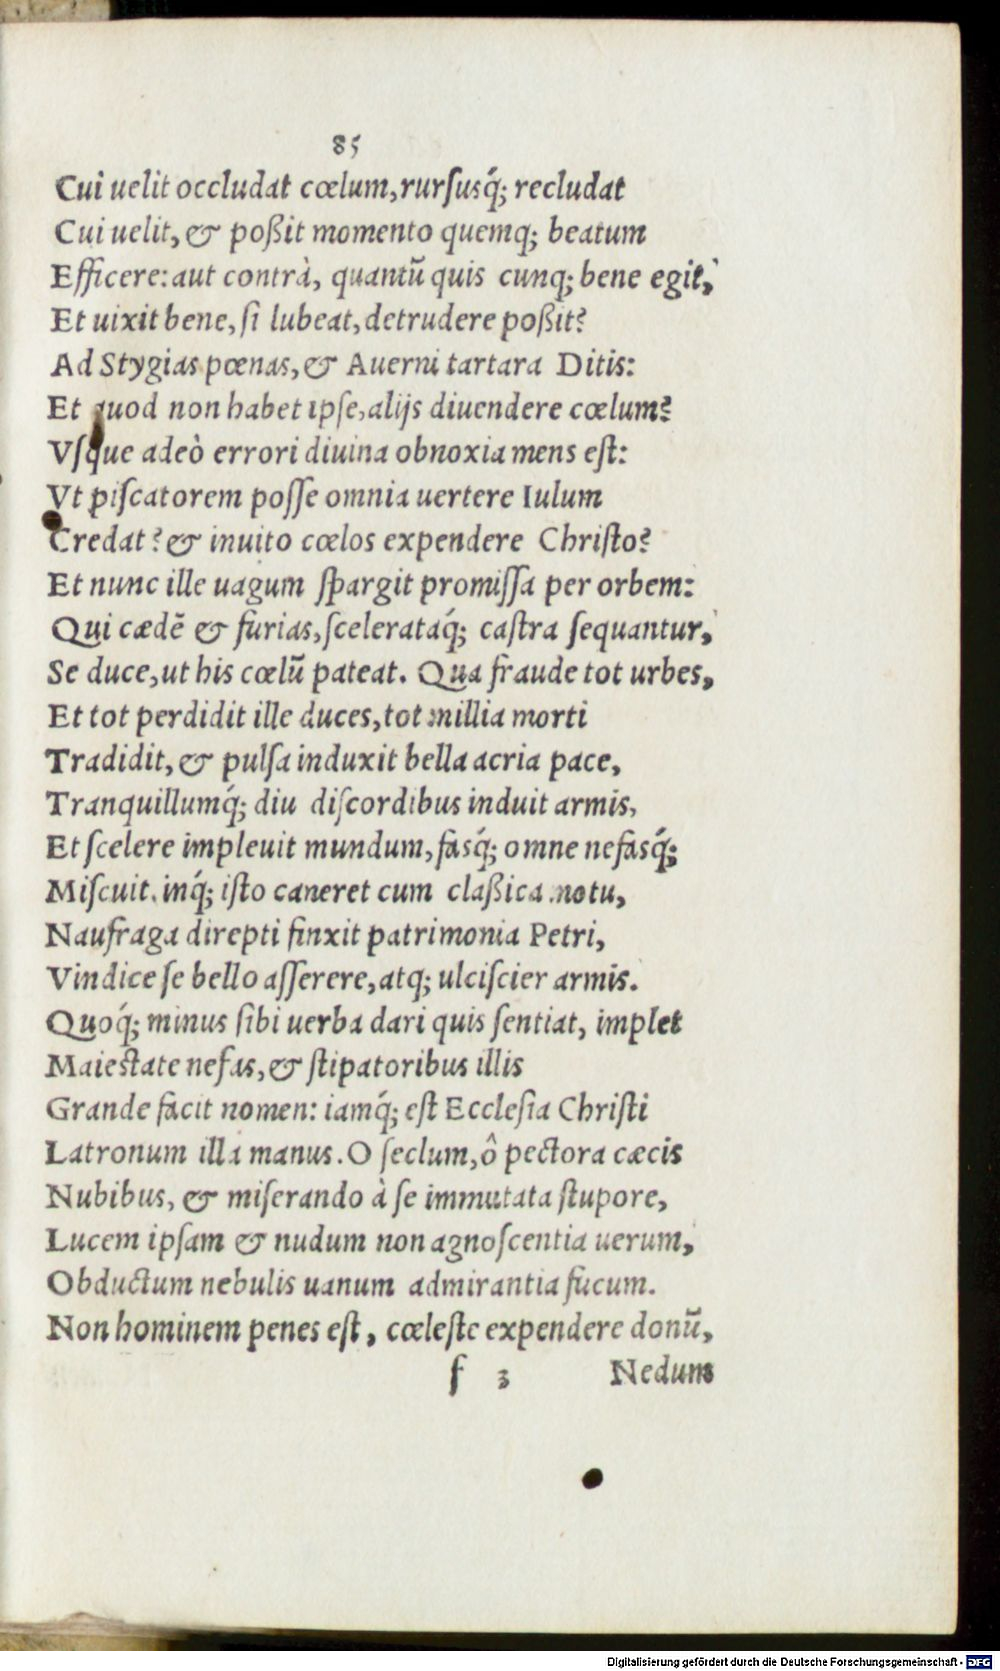 85
Cui uelit occludat cœlum, rurſusq́; recludat
Cui uelit, & poßit momento quemq; beatum
Efficere: aut contrà, quantũ quis cunq; bene egit,
Et uixit bene, ſi lubeat, detrudere poßit?
Ad Stygias pœnas, & Auerni tartara Ditis:
Et quod non habet ipſe, alijs diuendere cœlum?
Vſque adeò errori diuina obnoxia mens eſt:
Vt piſcatorem poſſe omnia uertere Iulum
Credat? & inuito cœlos expendere Chriſto?
Et nunc ille uagum ſpargit promiſſa per orbem:
Qui cædẽ & furias, ſcelerataq́; caſtra ſequantur,
Se duce, ut his cœlũ pateat. Qua fraude tot urbes,
Et tot perdidit ille duces, tot millia morti
Tradidit, & pulſa induxit bella acria pace,
Tranquillumq́; diu diſcordibus induit armis,
Et ſcelere impleuit mundum, fasq́; omne nefasq́;
Miſcuit. inq́; iſto caneret cum claßica motu,
Naufraga direpti finxit patrimonia Petri,
Vindice ſe bello aſſerere, atq; ulciſcier armis.
Quoq́; minus ſibi uerba dari quis ſentiat, implet
Maieſtate nefas, & ſtipatoribus illis
Grande facit nomen: iamq́; eſt Eccleſia Chriſti
Latronum illa manus. O ſeclum, ô pectora cæcis
Nubibus, & miſerando à ſe immutata ſtupore,
Lucem ipſam & nudum non agnoſcentia uerum,
Obductum nebulis uanum admirantia fucum.
Non hominem penes eſt, cœleſte expendere donũ,
f 3 Nedum
Digitalisierung gefördert durch die Deutsche Forschungsgemeinschaft - DFG